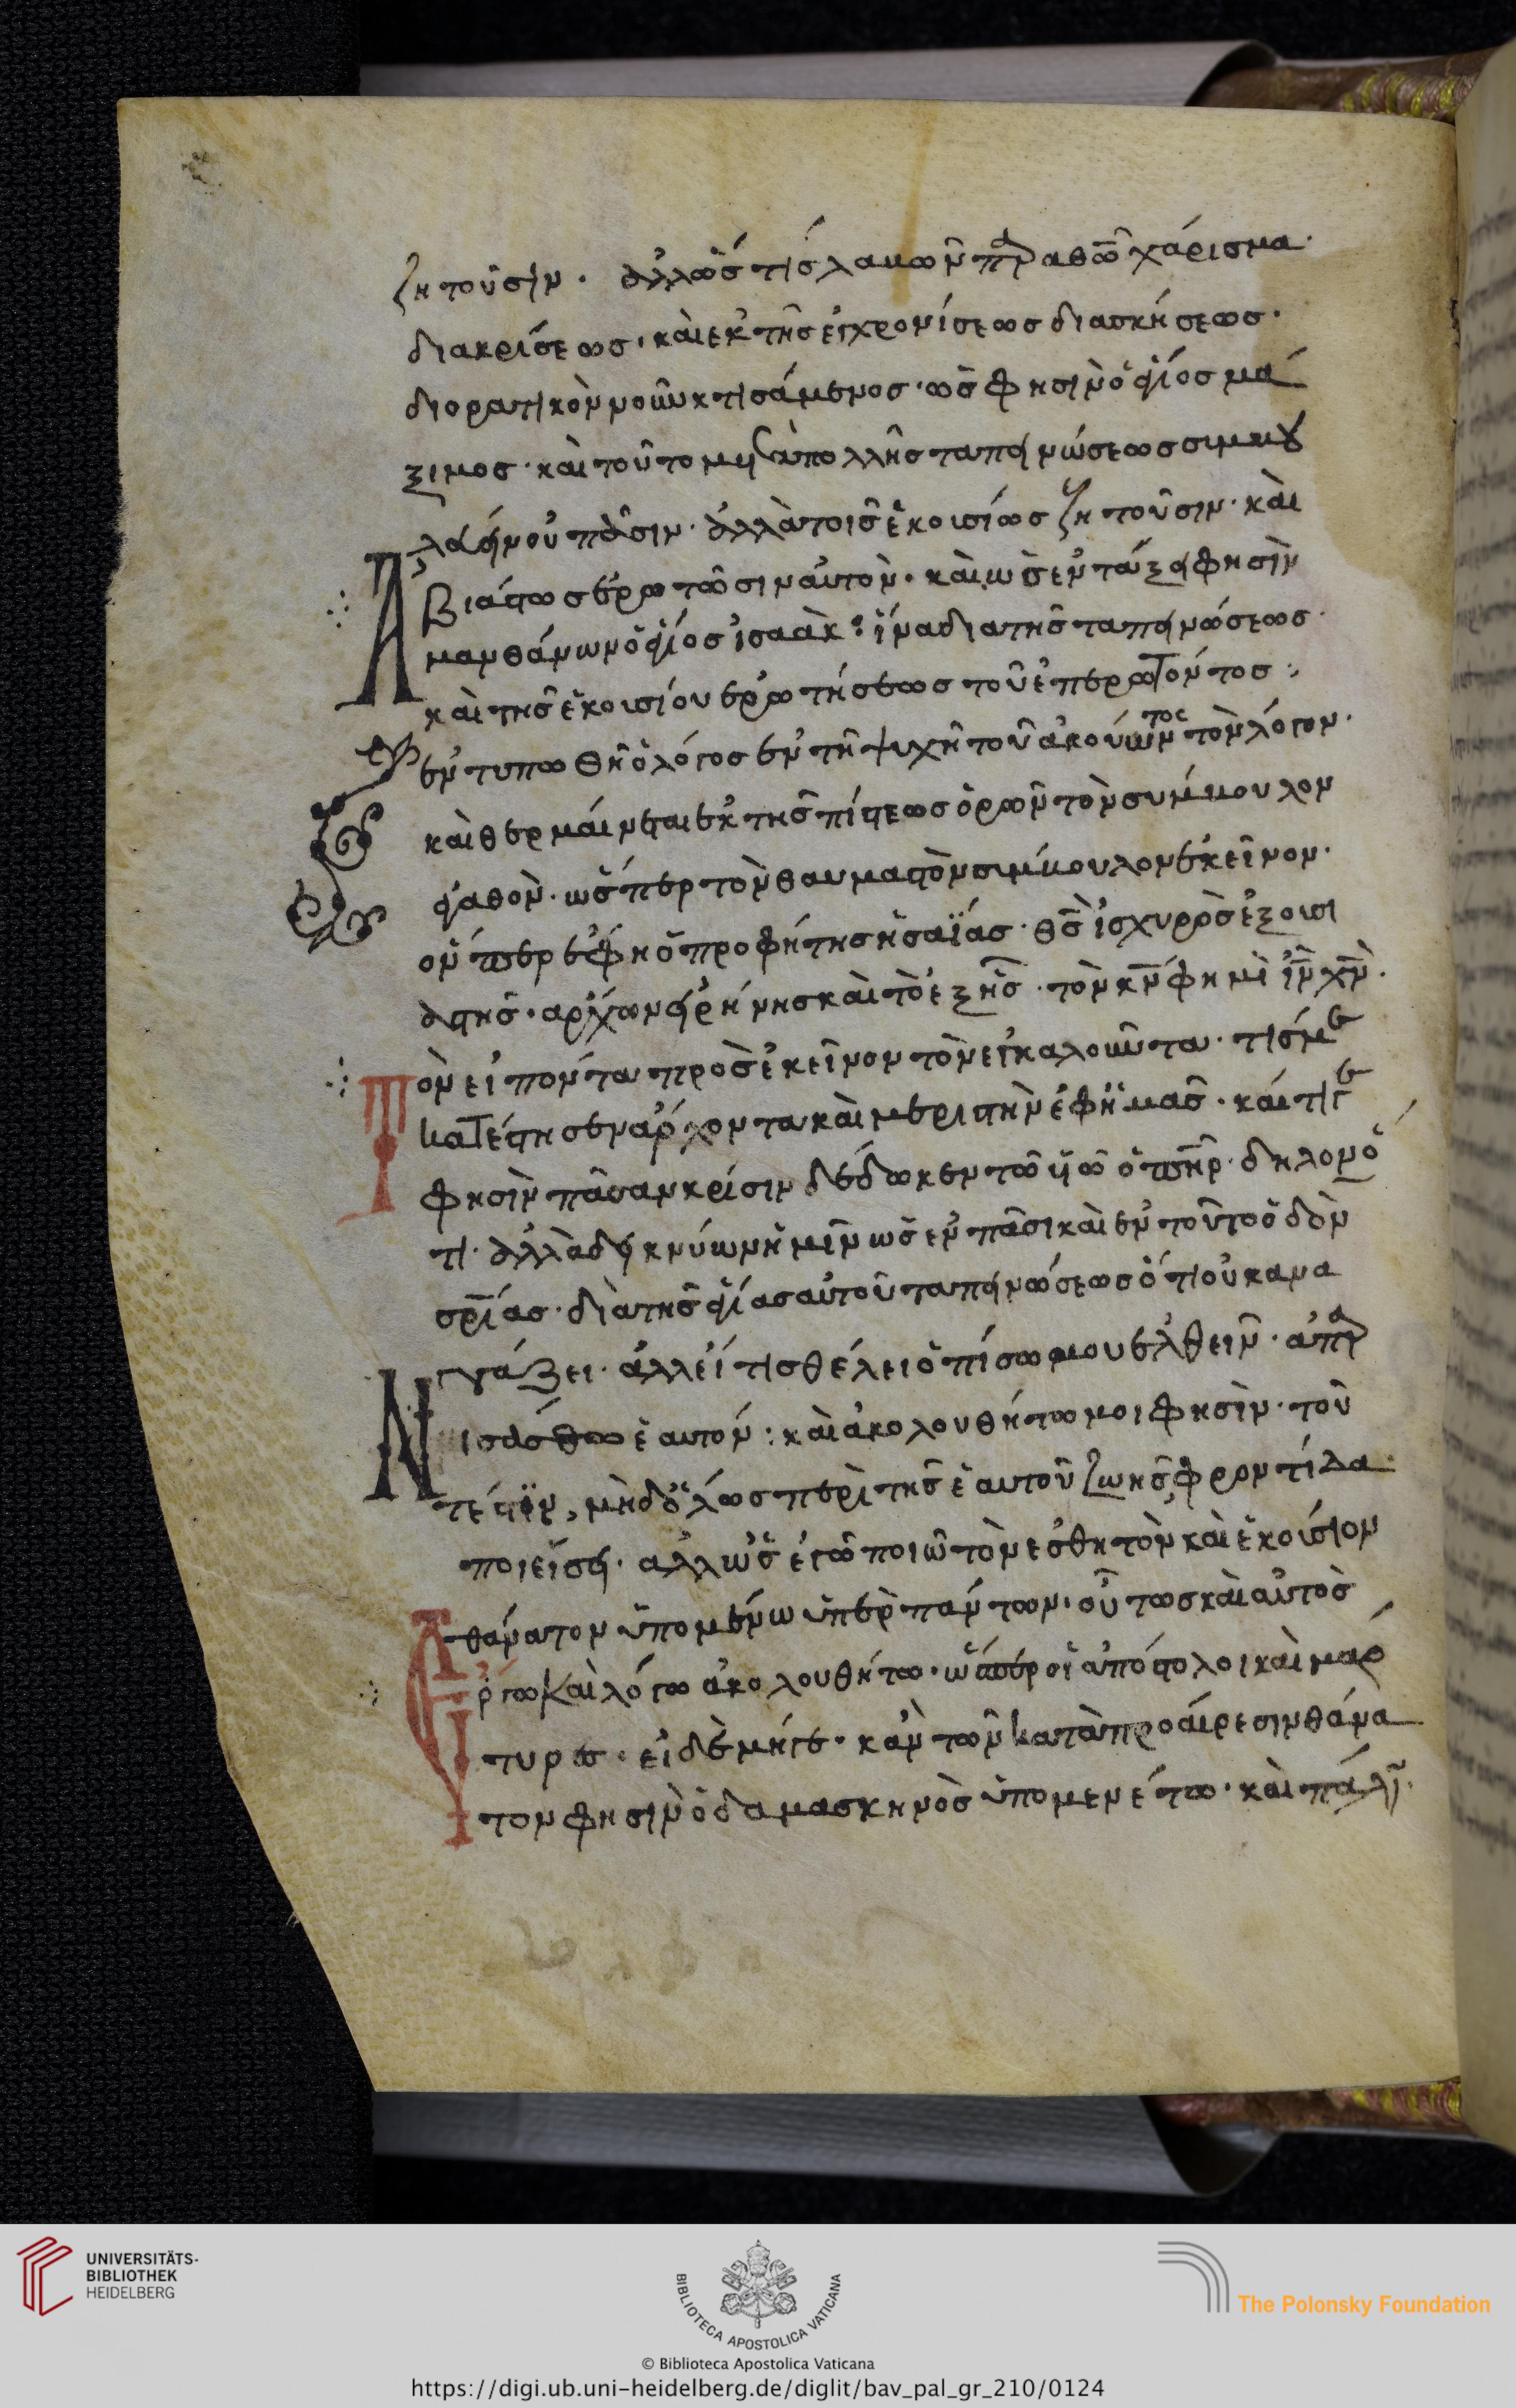 ζητοῦσιν. ἀλλ' ὥς τις λαβὼν παρὰ θεοῦ χάρισμα
διακρίσεως. καὶ ἐκ τῆς ἐγχρονίσεως διασκήσεως.
διορατικὸν νοῦν κτισάμενος. ὥς φησιν ὁ ἅγιος μά
ξιμος. καὶ τοῦτο μετὰ πολλῆς ταπεινώσεως συμβου
λάς εἶν οὐ πᾶσιν. ἀλλὰ τοῖς ἑκουσίως ζητοῦσιν. καὶ
ἀβιάστως ἐρωτῶσιν αὐτὸν. καὶ ὡς ἐν τάξει φησὶν
μανθάνων ὁ ἅγιος ἰσαὰκ: ἵνα δια τῆς ταπεινώσεως.
καὶ τῆς ἑκουσίου ἐρωτήσεως τοῦ ἐπερωτοντος:
ἐντυπωθῇ ὁ λόγος ἐν τῇ ψυχῇ τοῦ ἀκούωντος τὸν λόγον.
καὶ θερμαίνεται ἐκ τῆς πίστεως ὁρῶν τὸν σύμβουλον
ἀγαθὸν. ὥσπερ τὸν θαυμαστὸν σύμβουλον ἐκεῖνον.
ὅνπερ ἔφη ὁ προφήτης ἡσαΐας. θς ἰσχυρὸς ἐξουσι
αστης. ἄρχων εἰρήνης καὶ τὸ ἑξῆς. τὸν κν φημὶ ιν χν.
τὸν εἰπόντα πρὸς ἐκεῖνον τὸν ἐγκαλοῦντα. τίς με
κατέστησεν ἄρχοντα καὶ μεριστὴν ἐφ' ἡμᾶς. καίτιγε
φησὶν πᾶσαν κρίσιν δέδωκεν τῷ υἱῷ ὁ πηρ. δηλονό
τι. ἀλλὰ δεικνύων ἡμῖν ὡς ἐν πᾶσι καὶ ἐν τούτο ὁδὸν
σρίας. διὰ τῆς ἁγίας αὐτοῦ ταπεινώσεως ὅτι οὐκ ανα
γνάζει. ἀλλ' εἴ τις θέλει ὀπίσω μου ἐλθεῖν. ἀπαρ
νισάσθω ἑαυτόν: καὶ ἀκολουθήτω μοι φησὶν. τοῦ
τέστιν, μηδόλως περὶ τῆς ἑαυτοῦ ζωῆς φροντίδα
ποιείσει. ἀλλ' ὡς ἐγὼ ποιῶ τὸν εσθητὸν καὶ ἑκούσιον
θάνατον ὑπομένω ὑπὲρ πάντων. οὕτως καὶ αὐτὸς
ἔργω καὶ λόγω ἀκολουθήτω. ὥσπερ οἱ ἀπόστολοι καὶ μαρ
τυρες. εἰ δὲ μήγε. κἀν τῶν κατὰ προαίρεσιν θάνα
τον φησὶν ὁ δαμασκηνὸς ὑπομενέτω. καὶ πάλιν.
UNIVERSITÄTS-
BIBLIOTHEK
HEIDELBERG
BIBLIOTECA APOSTOLICA VATICANA
The Polonsky Foundation
© Biblioteca Apostolica Vaticana
https://digi.ub.uni-heidelberg.de/diglit/bav_pal_gr_210/0124